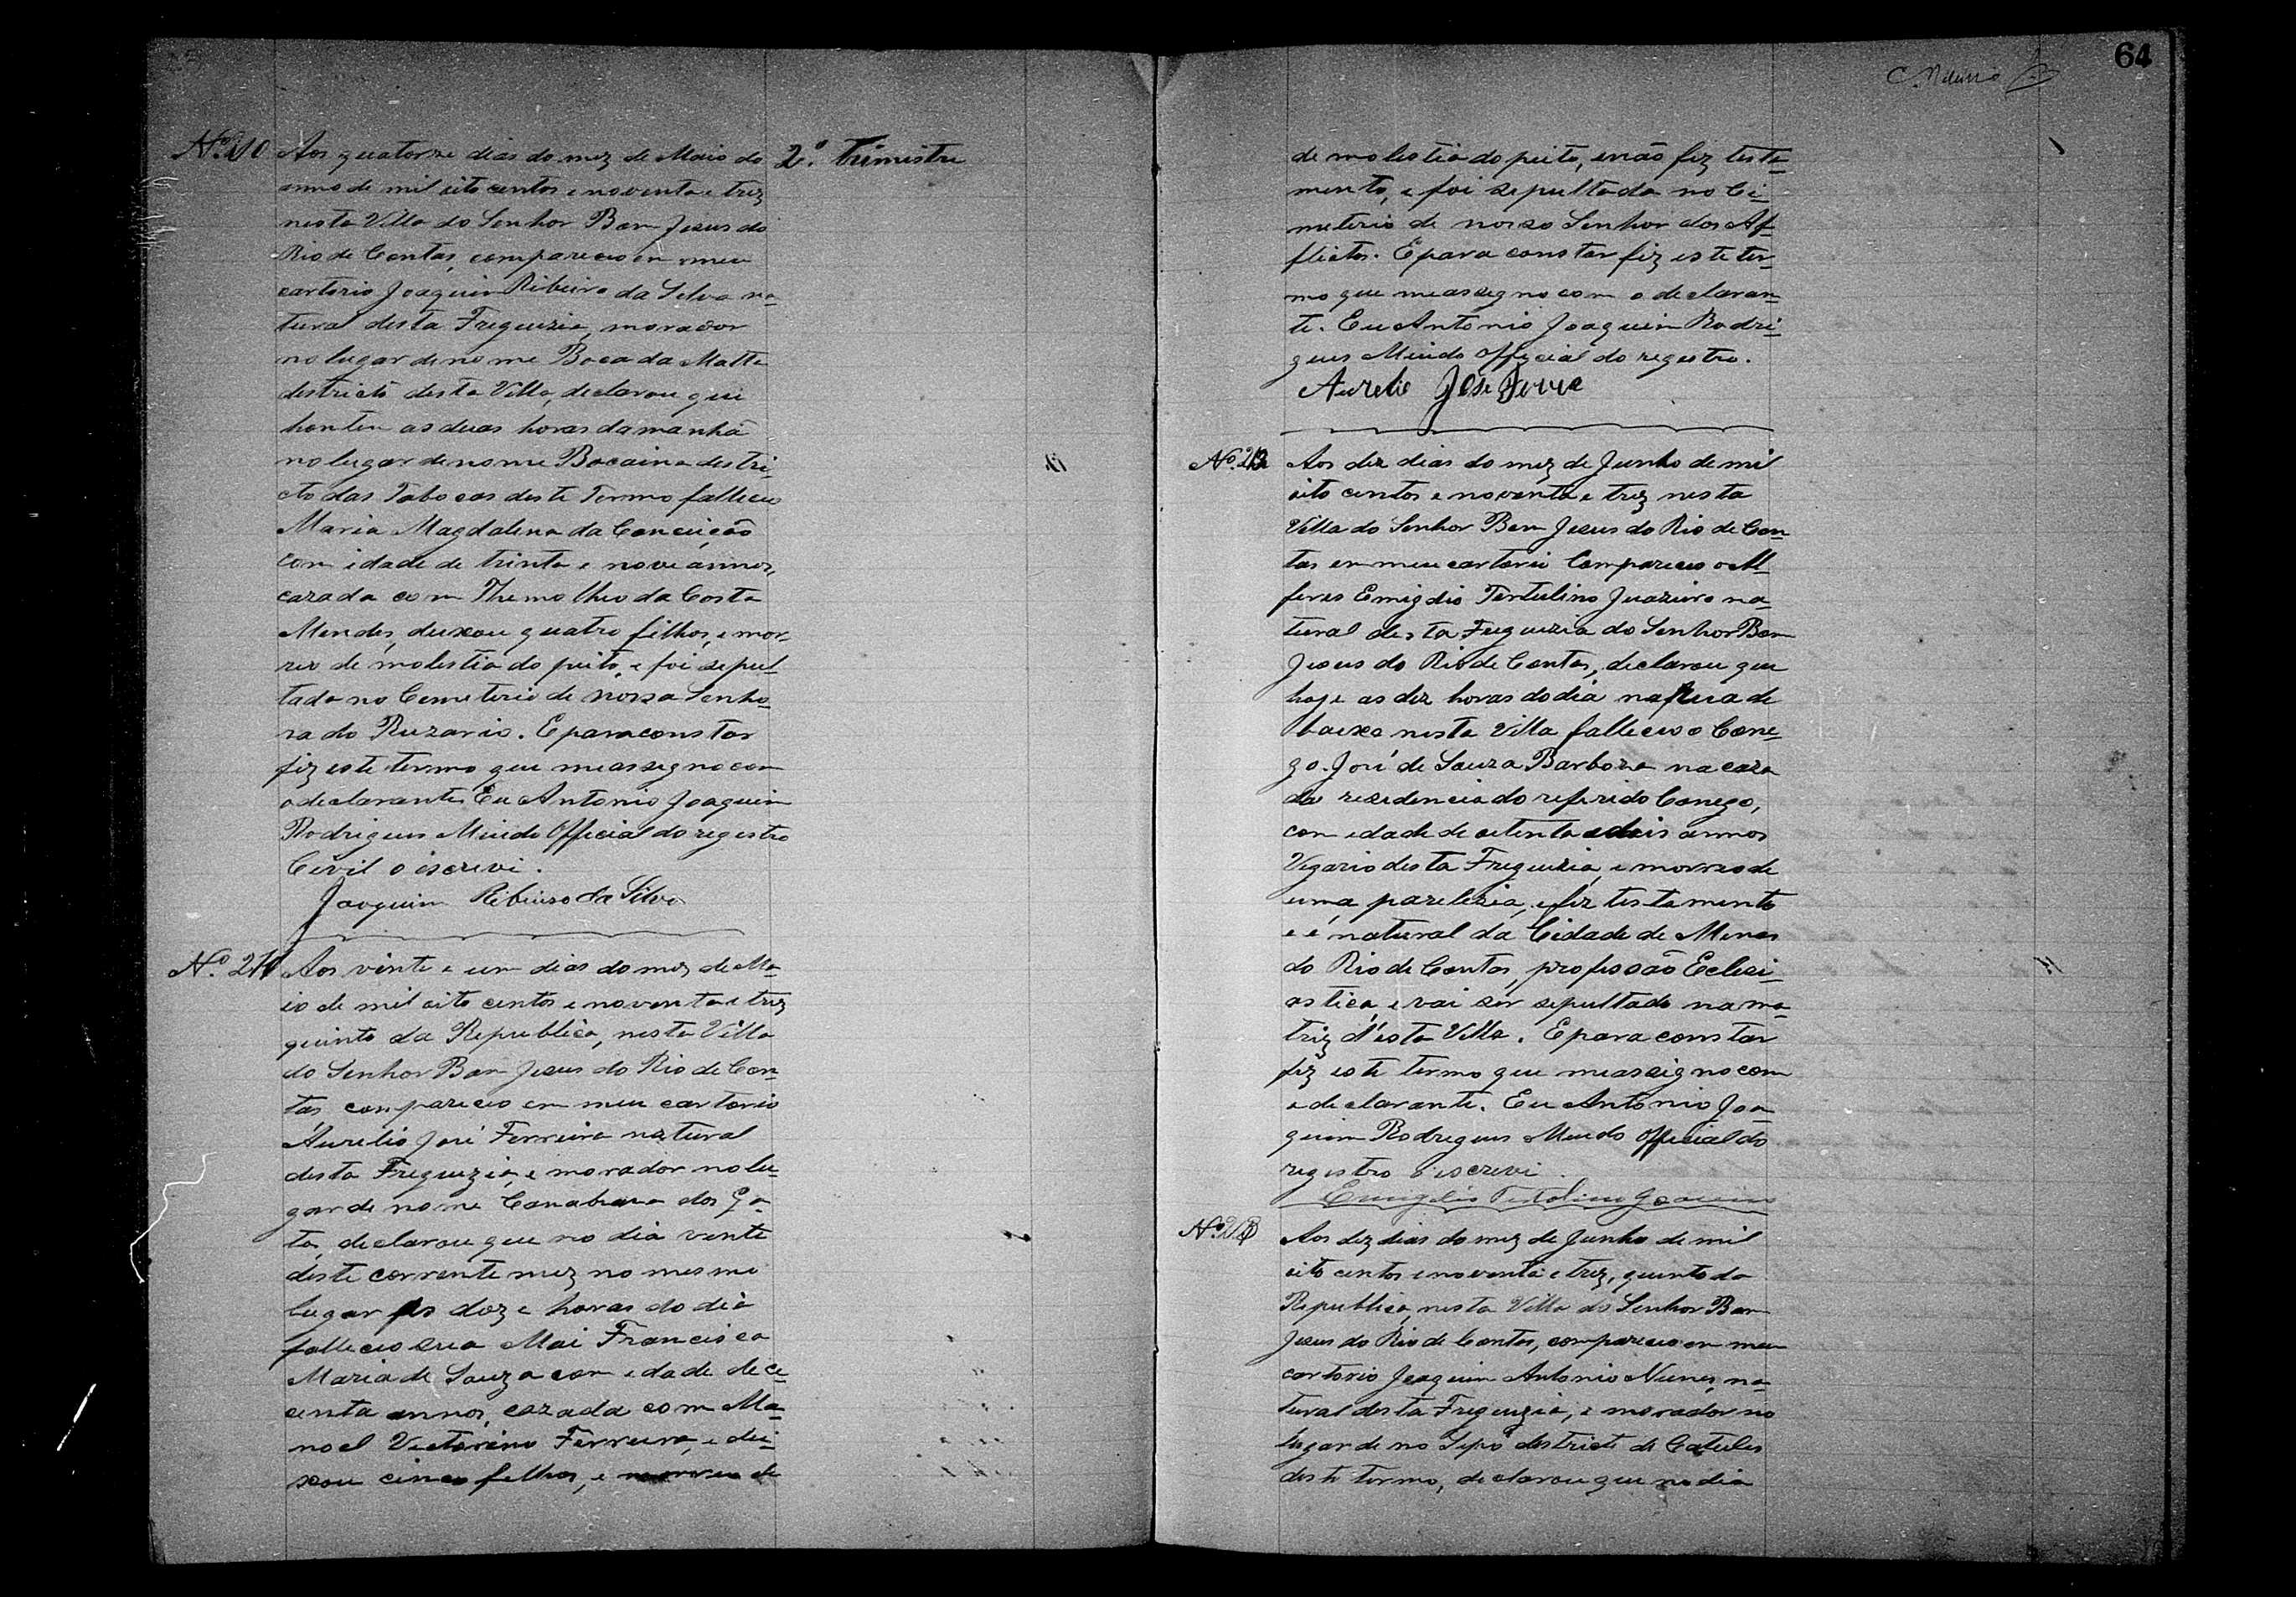 64
Nº 210
2º Trimestre
Aos quatorze dias do mez de Maio do
anno de mil oito centos e noventa e trez
nesta Villa do Senhor Bom Jesus do
Rio de Contas, compareceo em meu
cartorio Joaquim Ribeiro da Silva na-
tural desta Freguezia, morador
no lugar de nome Boca da Matta
districto desta Villa, declarou que
hontem as duas horas da manhã
no lugar de nome Bocaina destri-
cto das Tabocas deste Termo falleceo
Maria Magdalena da Conceição
com idade de trinta e nove annos,
cazada com Themotheo da Costa
Mendes, deixou quatro filhos, e mor-
reo de molestia do peito, e foi sepul-
tada no Cemeterio de nossa Senho-
ra do Ruzario. E para constar
fiz este termo que me assegno com
o declarante. Eu Antonio Joaquim
Rodrigues Official do registro
Civil o iscrevi.
Joaquim Ribeiro da Silva
Nº 211
Aos vinte e um dias do mez de Ma-
io de mil oito centos e noventa e trez
quinto da Republica, nesta Villa
do Senhor Bom Jesus do Rio de Con-
tas compareceo em meu cartorio
Aurelio José Ferreira natural
desta Freguezia, e morador no lu-
gar de nome Canabrava dos Ga-
tos, declarou que no dia vente
deste corrente mez no mesmo
lugar as doze horas do dia
falleceo sua Mai Francisca
Maria de Souza com edade de ce-
centa annos, cazada com Ma-
noel Victorino Ferreira, e dei-
xou cinco filhos, e morreu de
de molestia do peito, e não fez testa-
mento, e foi sepultada no Ci-
meterio de nosso Senhor dos Af-
flictos. E para constar fiz este ter-
mo que me assegno com o declaran-
te. Eu Antonio Joaquim Rodri-
gues Official do registro.
Aurelio José
Nº 212
Aos dez dias do mez de Junho de mil
oito centos e noventa e trez nesta
Villa do Senhor Bom Jesus do Rio de Con-
tas em meu cartorio Compareceo o Al-
feres Emigdio Tertulino na-
tural desta Freguezia do Senhor Bom
Jesus do Rio de Contas, declarou que
hoje as dez horas do dia na Rua de
baixo nesta Villa falleceo o Cone-
go José de Souza Barboza na caza
da rezidencia do referido Conego,
com edade de setenta e dois annos
Vegario desta Freguezia, e morreo de
uma parelizia, e fez testamento
e é natural da Cidade de Minas
do Rio de Contas, profissão Eclesi-
astica, e vai ser sepultado na ma-
triz d'esta Villa. E para constar
fiz este termo que me assigno com
o declarante. Eu Antonio Joa-
quim Rodregues Official do
registro o iscrevi.
Nº 213
Aos dez dias do mez de Junho de mil
oito centos e noventa e trez, quinto da
Republica, nesta Villa do Senhor Bom
Jesus do Rio de Contas, compareceo em meu
cartorio Joaquim Antonio Nunes, na-
tural desta Freguezia, e morador no
lugar de no Sipó destricto de Catules
deste termo, declarou que no dia